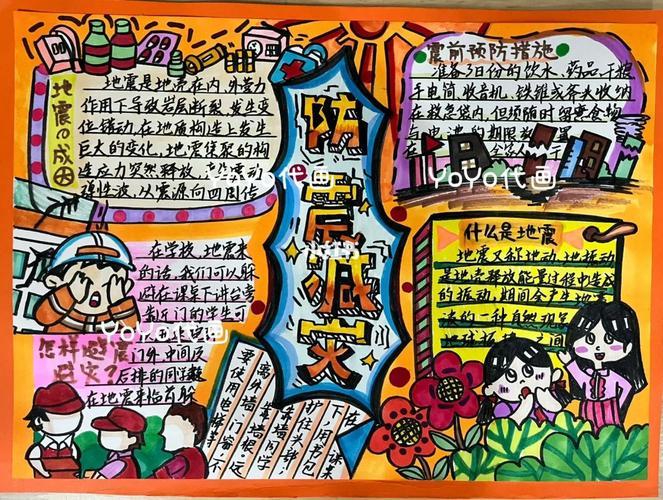 防震减灾
地震の成因
地震是地壳在内、外营力
作用下导致岩层断裂,发生变
位错动,在地质构造上发生
巨大的变化,地震集聚的构
造应力突然释放,
弹性波,从震源向四周传
震前预防措施
准备3日份的饮水,药品,干粮
手电筒,收音机,铁锥或茶夹收纳
在救急袋内,但须随时留意食物
与电池的期限
什么是地震
地震又称地动、地振动
是地壳释放能量过程中造成
的振动,期间会产生地震
波的一种自然现象
之间
在学校,地震来
的话,我们可以躲
避在课桌下讲台旁
靠近门的学生可
门外,中间及
后排的同学
在地震来临首躲
怎样避震
避灾?
在课桌
下,用书包
护住头部;
靠墙同学
靠墙根。
要
使用电梯
YoYo代画
YoYo代画
YoYo代画
小红书